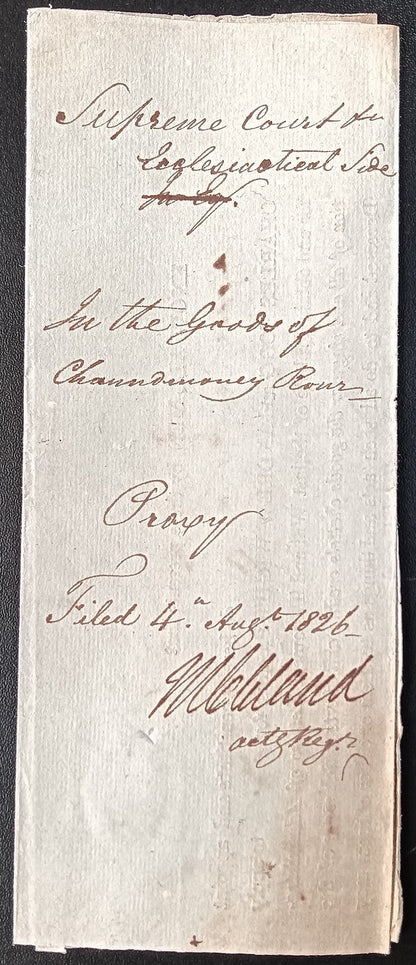 Supreme Court &
Ecclesiastical Side
In Eq.
In the Goods of
Chaundmoney Rour
Proxy
Filed 4th Augt. 1826
actg Regr.